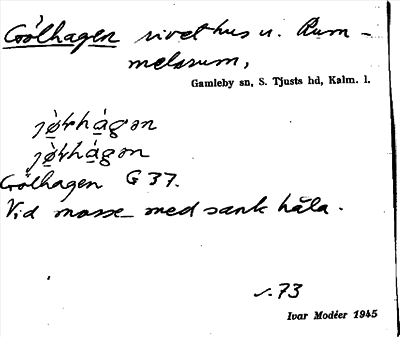 Gölhagen rivet hus u. Rum-
melsrum,
Gamleby sn, S. Tjusts hd, Kalm. l.
jö̀ɫhá̱gən
jö̀ɫhá̱gən
Gölhagen G 37.
Vid mosse med sank håla.
s. 73
Ivar Modéer 1945